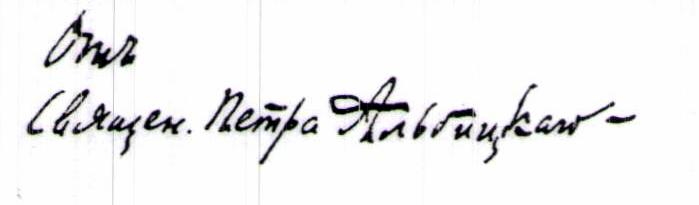 Отъ
Священ. Петра Альбицкаго –